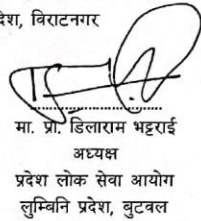 देश, विराटनगर
मा. प्रो. डिलाराम भट्टराई
अध्यक्ष
प्रदेश लोक सेवा आयोग
लुम्बिनि प्रदेश, बुटवल